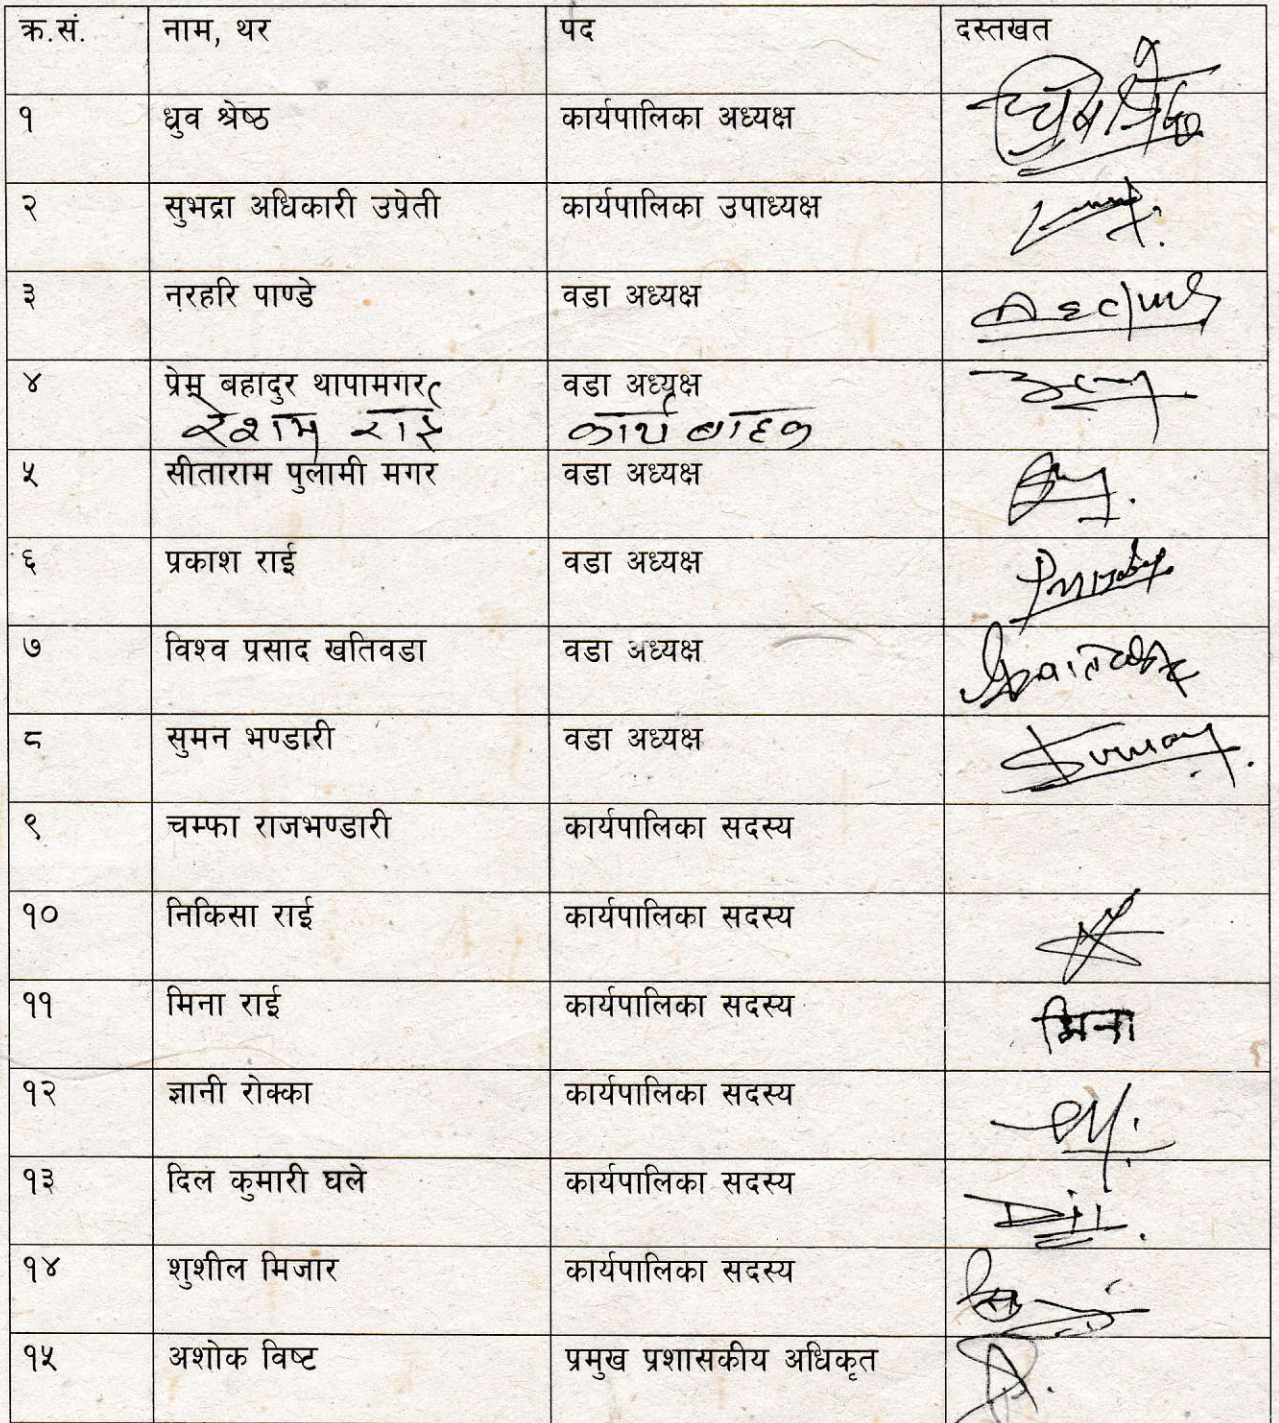 क्र.सं. नाम, थर पद दस्तखत
१ ध्रुव श्रेष्ठ कार्यपालिका अध्यक्ष ध्रुब श्रेष्ठ
२ सुभद्रा अधिकारी उप्रेती कार्यपालिका उपाध्यक्ष
३ नरहरि पाण्डे वडा अध्यक्ष
४ प्रेम बहादुर थापामगर वडा अध्यक्ष
रेशम राई कार्य बाहक
५ सीताराम पुलामी मगर वडा अध्यक्ष
६ प्रकाश राई वडा अध्यक्ष
७ विश्व प्रसाद खतिवडा वडा अध्यक्ष
८ सुमन भण्डारी वडा अध्यक्ष Suman
९ चम्फा राजभण्डारी कार्यपालिका सदस्य
१० निकिसा राई कार्यपालिका सदस्य
११ मिना राई कार्यपालिका सदस्य मिना
१२ ज्ञानी रोक्का कार्यपालिका सदस्य
१३ दिल कुमारी घले कार्यपालिका सदस्य Dil
१४ शुशील मिजार कार्यपालिका सदस्य
१५ अशोक विष्ट प्रमुख प्रशासकीय अधिकृत